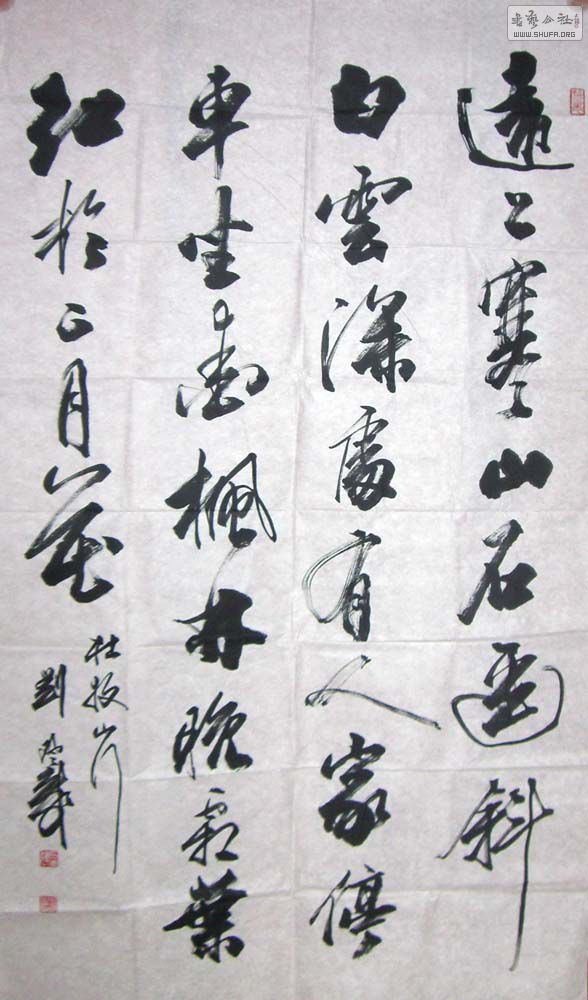 書藝公社
WWW.SHUFA.ORG
遠上寒山石逕斜
白雲深處有人家停
車坐愛楓林晚霜葉
紅於二月花
杜牧山行
劉